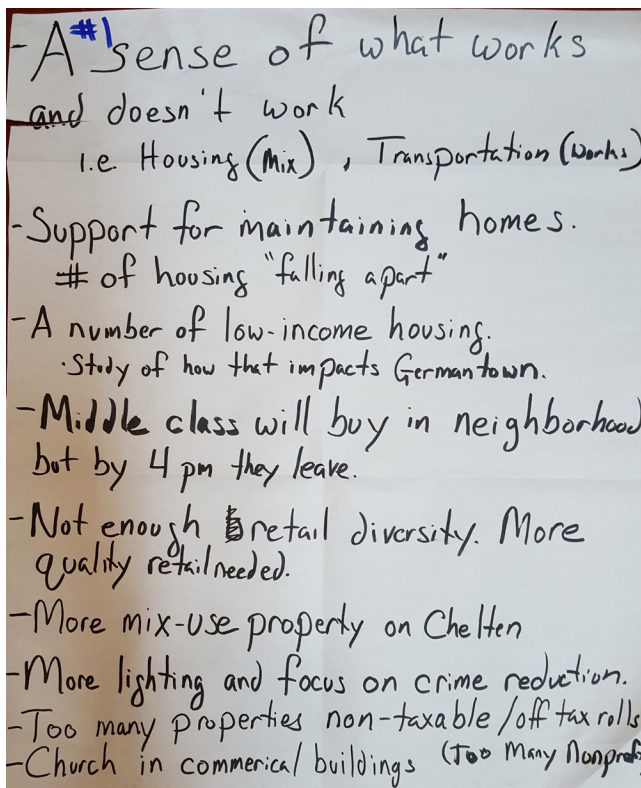 #1
- A sense of what works
and doesn't work
i.e. Housing (Mix), Transportation (Works)
- Support for maintaining homes.
# of housing "falling apart"
- A number of low-income housing.
· Study of how that impacts Germantown.
- Middle class will buy in neighborhood
but by 4 pm they leave.
- Not enough retail diversity. More
quality retail needed.
- More mix-use property on Chelten
- More lighting and focus on crime reduction.
- Too many properties non-taxable/off tax rolls
- Church in commerical buildings (Too Many Nonprof